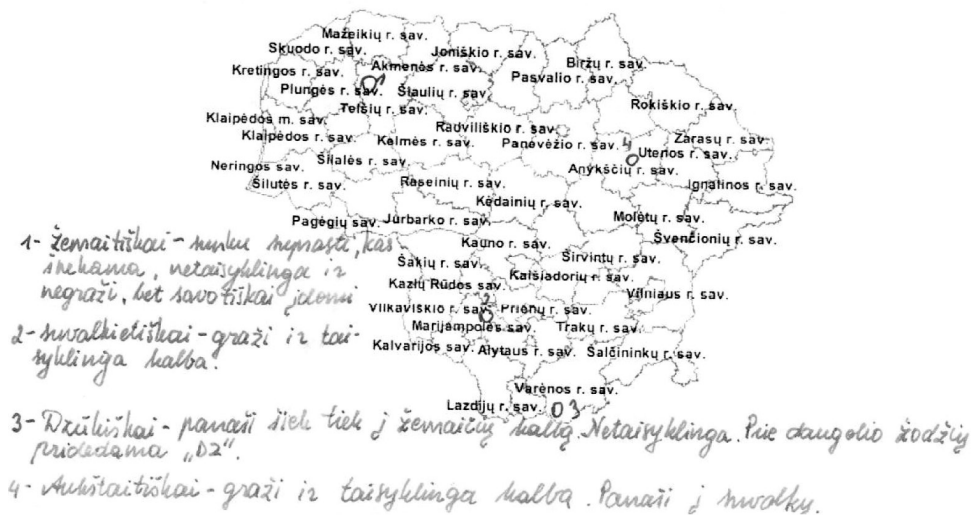 Mažeikių r. sav.
Skuodo r. sav.
Joniškio r. sav.
Biržų r. sav.
Kretingos r. sav.
Akmenės r. sav.
Pasvalio r. sav.
1
Plungės r. sav.
Šiaulių r. sav.
Telšių r. sav.
Rokiškio r. sav.
Klaipėdos m. sav.
Radviliškio r. sav.
Klaipėdos r. sav.
Kelmės r. sav.
Panevėžio r. sav.
4
Zarasų r. sav.
Utenos r. sav.
Neringos sav.
Šilalės r. sav.
Anykščių r. sav.
Šilutės r. sav.
Raseinių r. sav.
Ignalinos r. sav.
Kėdainių r. sav.
Pagėgių sav.
Jurbarko r. sav.
Molėtų r. sav.
Kauno r. sav.
Švenčionių r. sav.
Šakių r. sav.
Širvintų r. sav.
Kaišiadorių r. sav.
Kazlų Rūdos sav.
Vilniaus r. sav.
Vilkaviškio r. sav.
2
Prienų r. sav.
Marijampolės sav.
Trakų r. sav.
Kalvarijos sav.
Alytaus r. sav.
Šalčininkų r. sav.
Varėnos r. sav.
Lazdijų r. sav.
3
1- Žemaitiškai - sunku suprasti, kas
šnekama, netaisyklinga ir
negraži, bet savotiškai įdomi
2- suvalkietiškai - graži ir tai-
syklinga kalba.
3- Dzūkiškai - panaši šiek tiek į žemaičių kalbą. Netaisyklinga. Prie daugelio žodžių
pridedama „DZ".
4- Aukštaitiškai - graži ir taisyklinga kalba. Panaši į suvalkų.